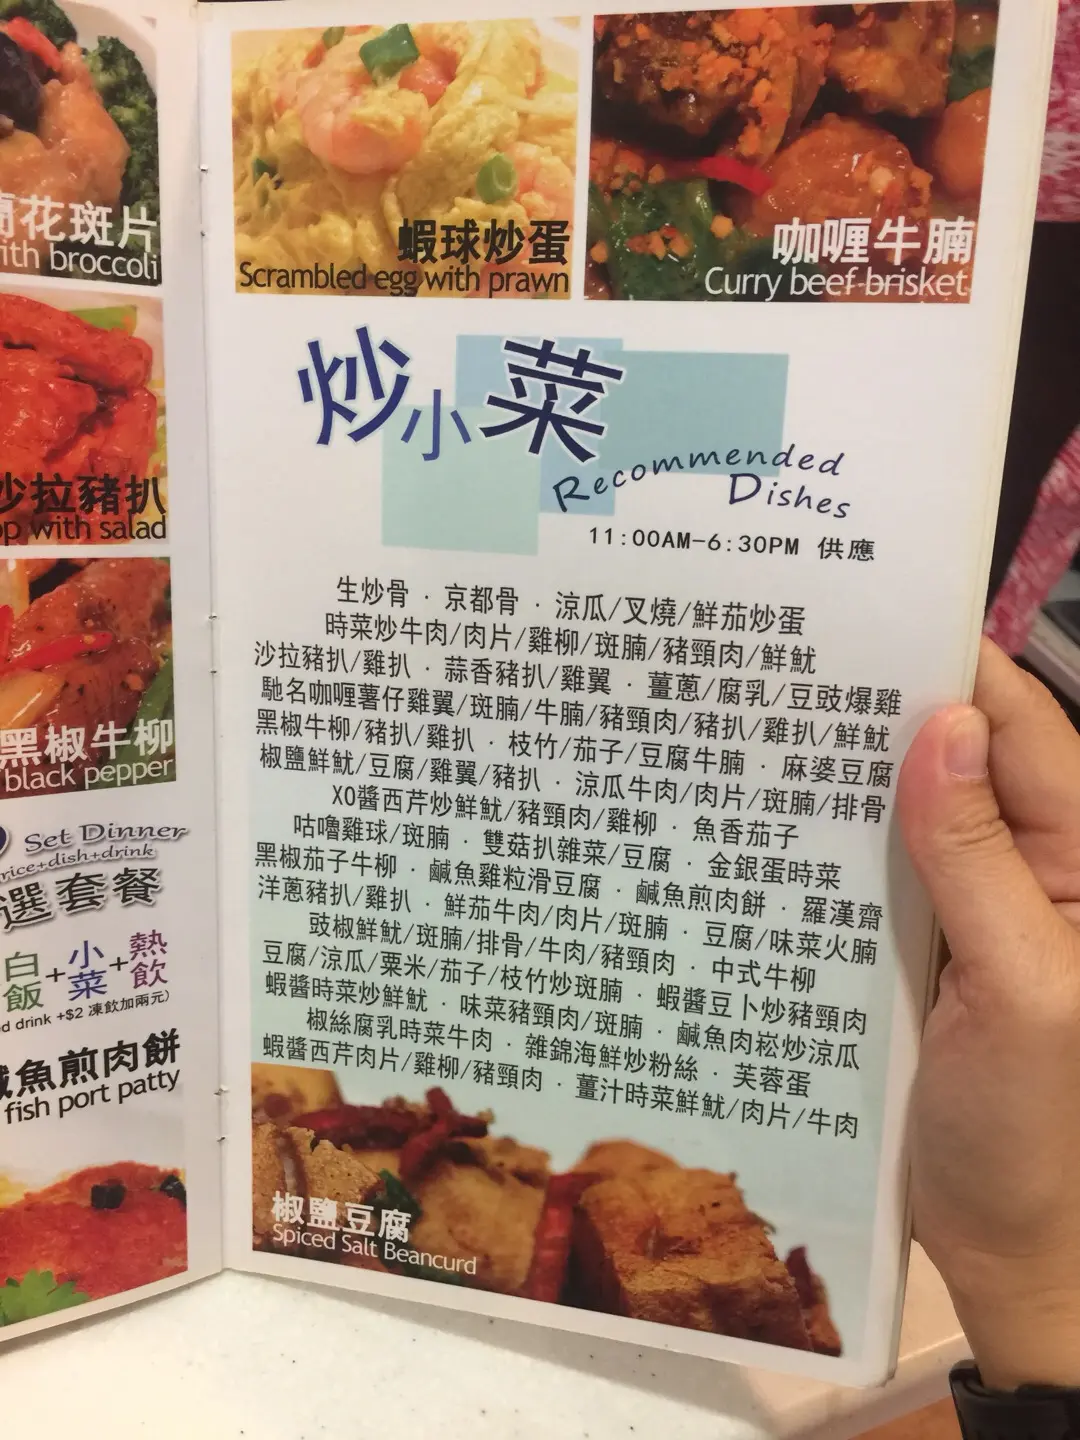 蘭花斑片
ith broccoli
沙拉豬扒
op with salad
黑椒牛柳
black pepper
Set Dinner
rice+dish+drink
選套餐
白飯+小菜+熱飲
d drink +$2 凍飲加兩元)
鹹魚煎肉餅
fish port patty
蝦球炒蛋
Scrambled egg with prawn
咖喱牛腩
Curry beef brisket
炒小菜
Recommended
Dishes
11:00AM-6:30PM 供應
生炒骨 · 京都骨 · 涼瓜/叉燒/鮮茄炒蛋
時菜炒牛肉/肉片/雞柳/斑腩/豬頸肉/鮮魷
沙拉豬扒/雞扒 · 蒜香豬扒/雞翼 · 薑蔥/腐乳/豆豉爆雞
馳名咖喱薯仔雞翼/斑腩/牛腩/豬頸肉/豬扒/雞扒/鮮魷
黑椒牛柳/豬扒/雞扒 · 枝竹/茄子/豆腐牛腩 · 麻婆豆腐
椒鹽鮮魷/豆腐/雞翼/豬扒 · 涼瓜牛肉/肉片/斑腩/排骨
XO醬西芹炒鮮魷/豬頸肉/雞柳 · 魚香茄子
咕嚕雞球/斑腩 · 雙菇扒雜菜/豆腐 · 金銀蛋時菜
黑椒茄子牛柳 · 鹹魚雞粒滑豆腐 · 鹹魚煎肉餅 · 羅漢齋
洋蔥豬扒/雞扒 · 鮮茄牛肉/肉片/斑腩 · 豆腐/味菜火腩
豉椒鮮魷/斑腩/排骨/牛肉/豬頸肉 · 中式牛柳
豆腐/涼瓜/粟米/茄子/枝竹炒斑腩 · 蝦醬豆卜炒豬頸肉
蝦醬時菜炒鮮魷 · 味菜豬頸肉/斑腩 · 鹹魚肉崧炒涼瓜
椒絲腐乳時菜牛肉 · 雜錦海鮮炒粉絲 · 芙蓉蛋
蝦醬西芹肉片/雞柳/豬頸肉 · 薑汁時菜鮮魷/肉片/牛肉
椒鹽豆腐
Spiced Salt Beancurd